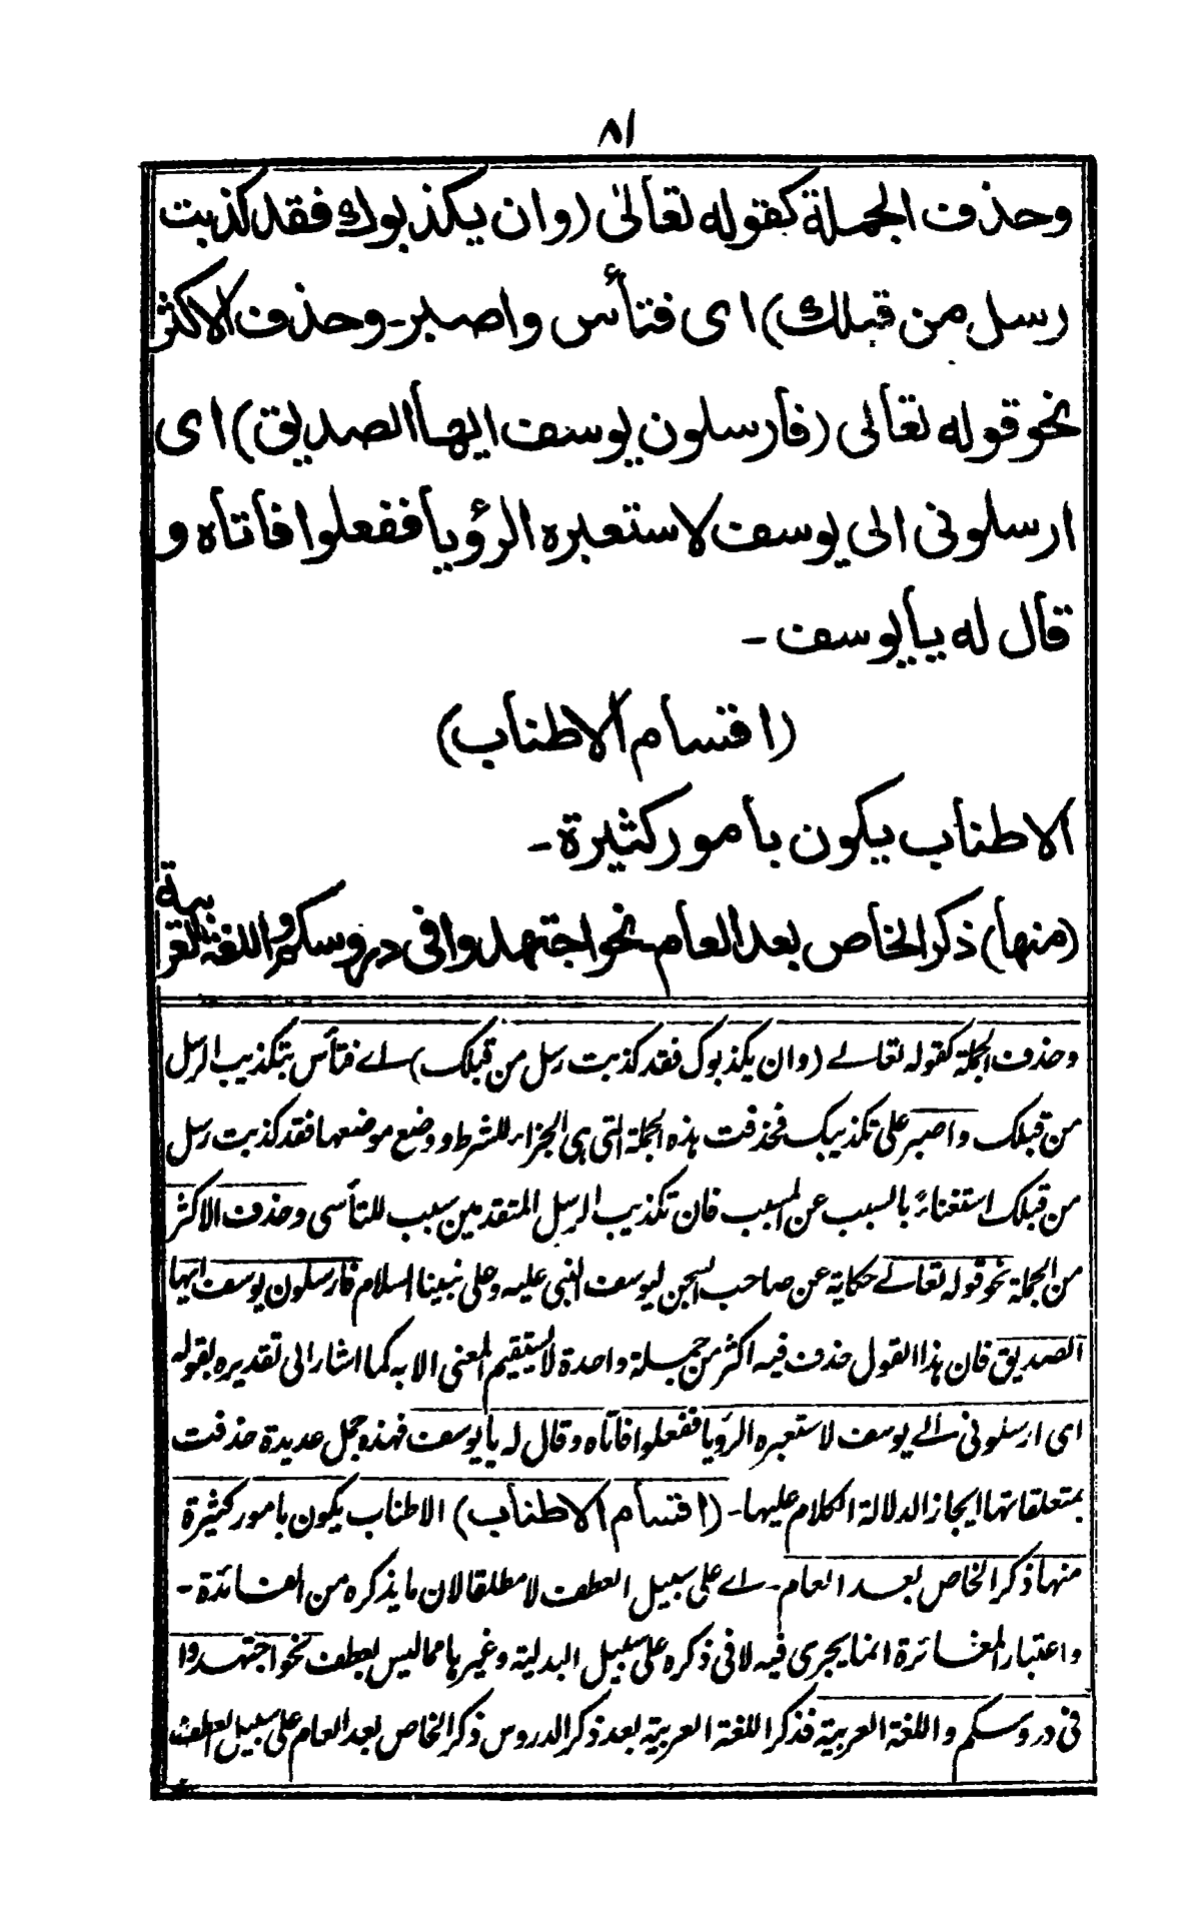 ٨١
وحذف الجملة كقوله تعالىٰ (وان يكذبوك فقد كذبت
رسل من قبلك) اى فتأس واصبر-وحذف الاكثر
نحو قوله تعالى (فارسلون يوسف ايها الصديق) اى
ارسلونى الى يوسف لاستعبره الرؤيا ففعلوا فاتاه و
قال له يايوسف -
(اقسام الاطناب)
الاطناب يكون بامور كثيرة -
(منها) ذكر الخاص بعد العام نحو اجتهدوا فى دروسكم واللغة العربية
وحذف الجملة كقوله تعالے (وان يكذبوك فقد كذبت رسل من قبلك) اے فتأس بتكذيب الرسل
من قبلك واصبر على تكذيبك فحذفت هذه الجملة التى هى الجزاء للشرط ووضع موضعها فقد كذبت رسل
من قبلك استغناءً بالسبب عن المسبب فان تكذيب الرسل المتقدمين سبب للتأسى وحذف الاكثر
من الجملة نحو قوله تعالے حكاية عن صاحب السجن ليوسف النبى عليه وعلى نبينا السلام فارسلون يوسف ايها
الصديق فان هذا القول حذف فيه اكثر من جملة واحدة لا يستقيم المعنى الا به كما اشار الى تقديره بقوله
اى ارسلونى الے يوسف لاستعبره الرؤيا ففعلوا فاتاه وقال له يايوسف فهذه جمل عديدة حذفت
بمتعلقاتها ايجازا لدلالة الكلام عليها- (اقسام الاطناب) الاطناب يكون بامور كثيرة
منها ذكر الخاص بعد العام- اے على سبيل العطف لا مطلقا لان ما يذكره من الفائدة -
واعتبار المغائرة انما يجرى فيه لا فى ذكره على سبيل البدلية وغيرها مما ليس بعطف نحو اجتهدوا
فى دروسكم واللغة العربية فذكر اللغة العربية بعد ذكر الدروس ذكر الخاص بعد العام على سبيل العطف